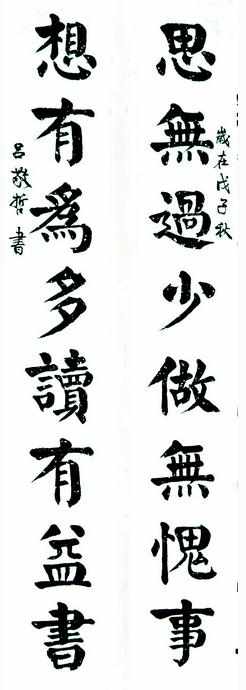 歲在戊子秋
思無過少做無愧事
想有為多讀有益書
呂敬哲書